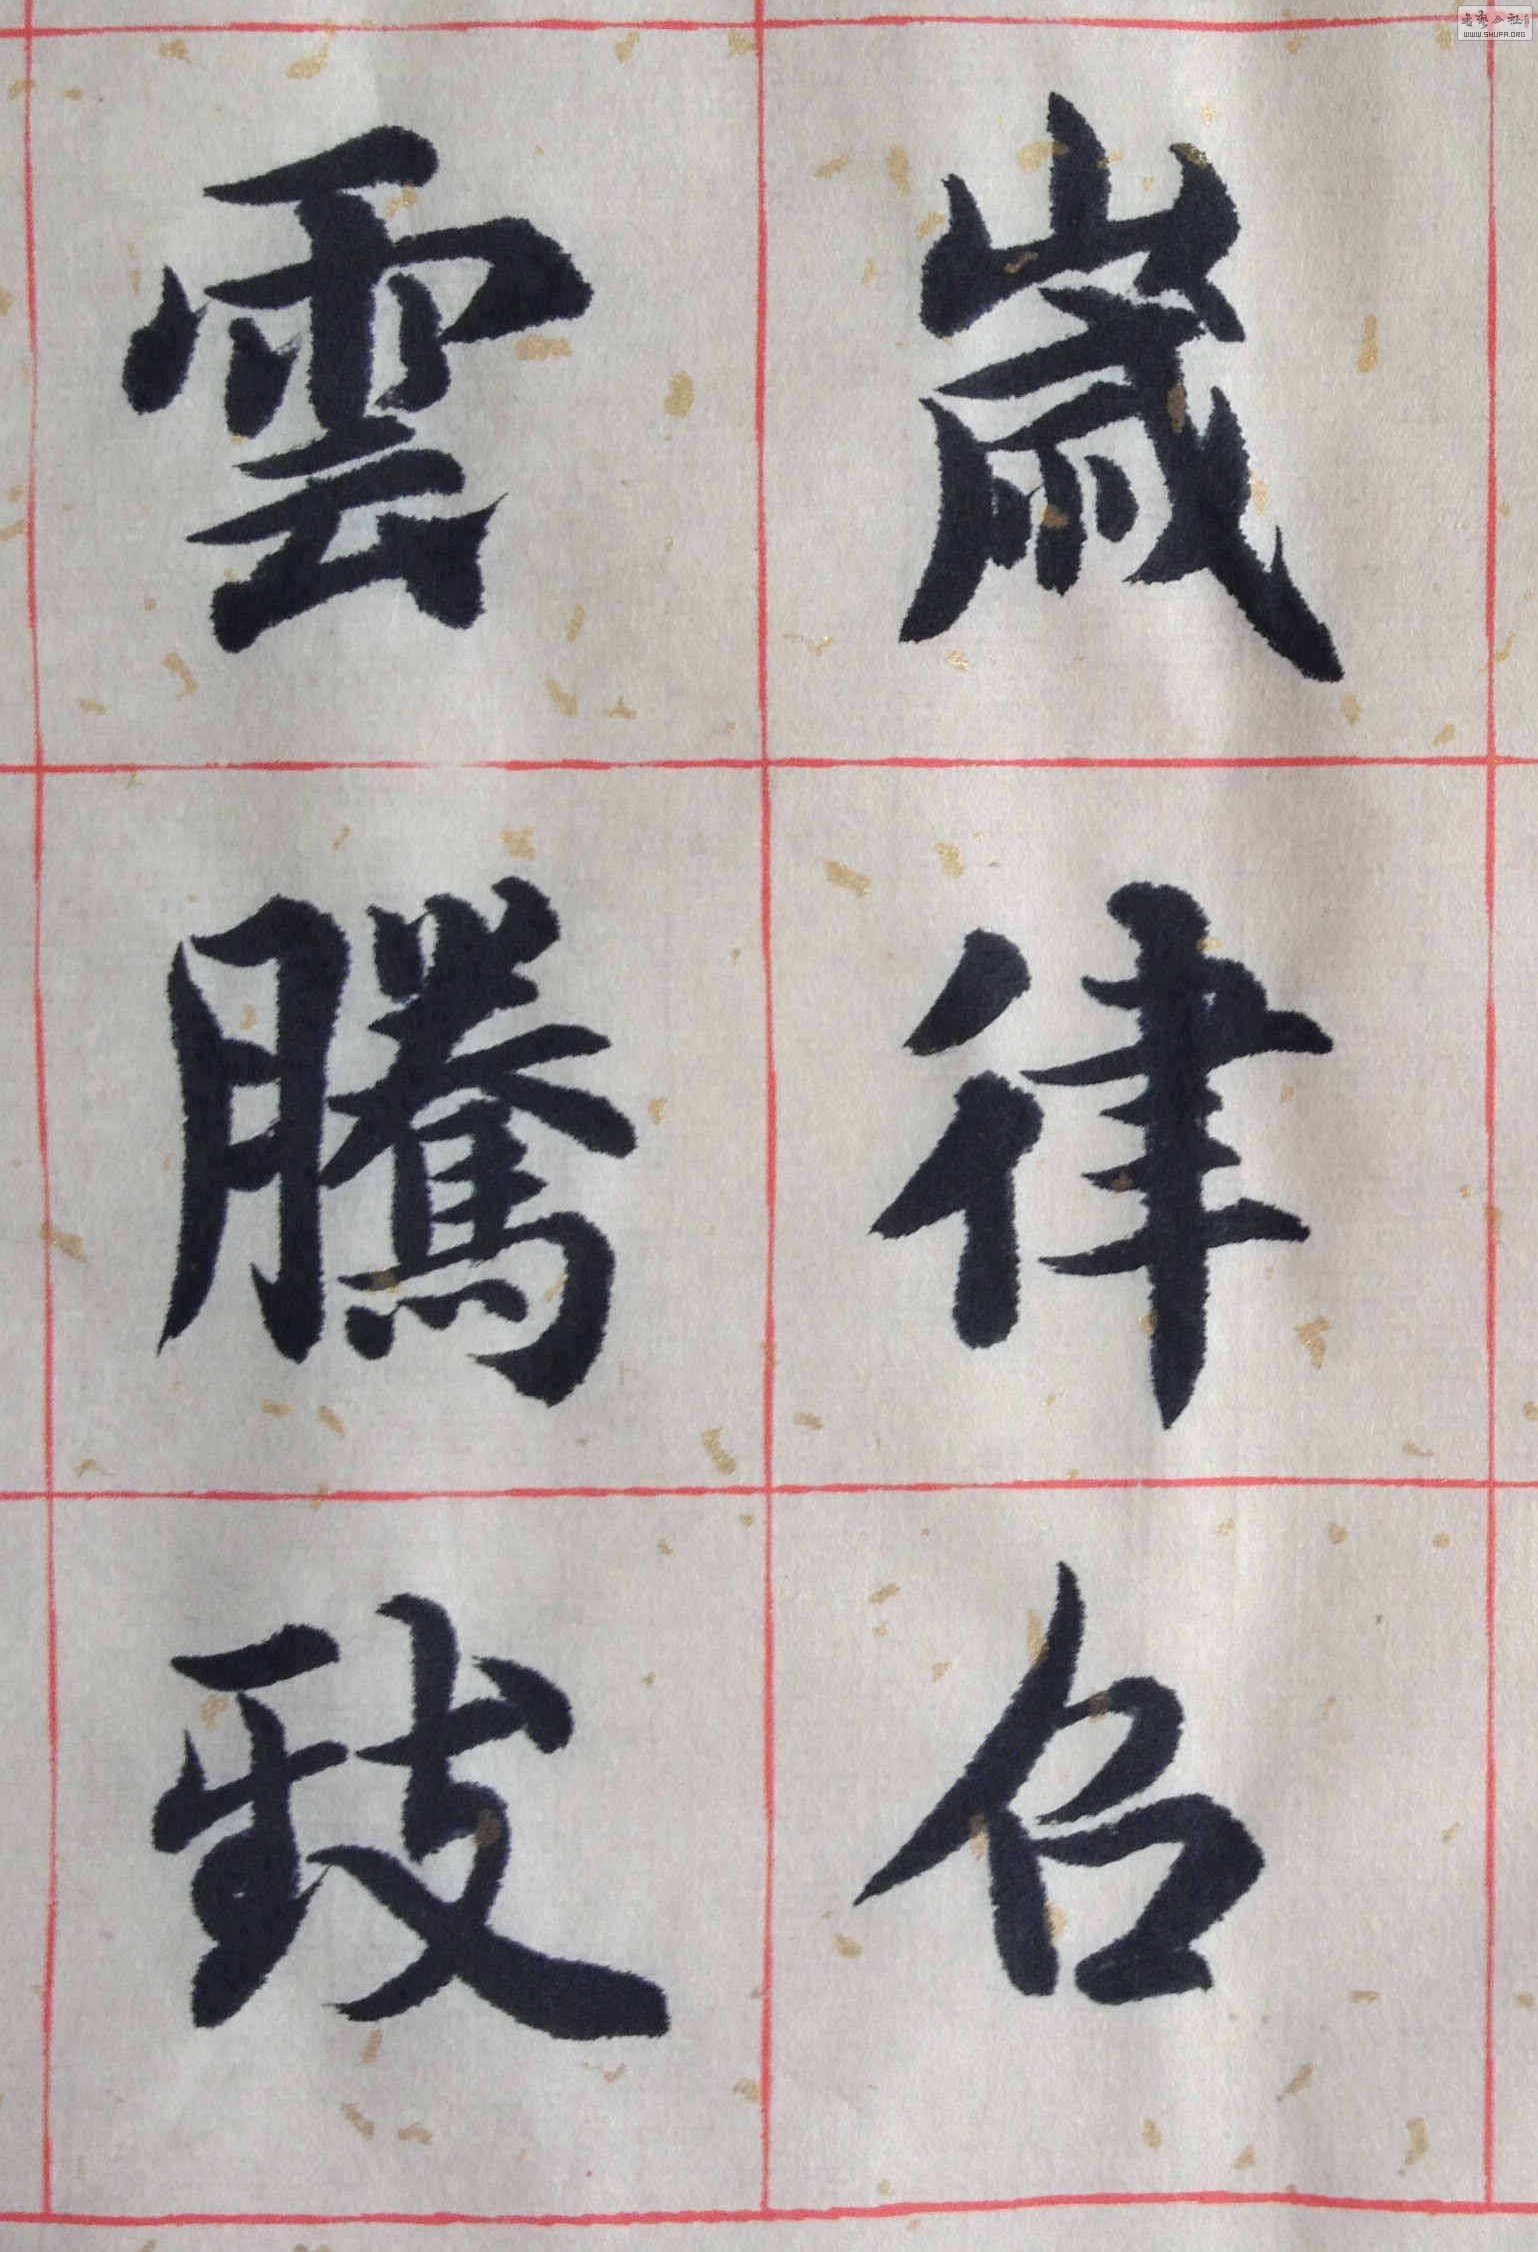 歲律召
雲騰致
書藝公社
WWW.SHUFA.ORG